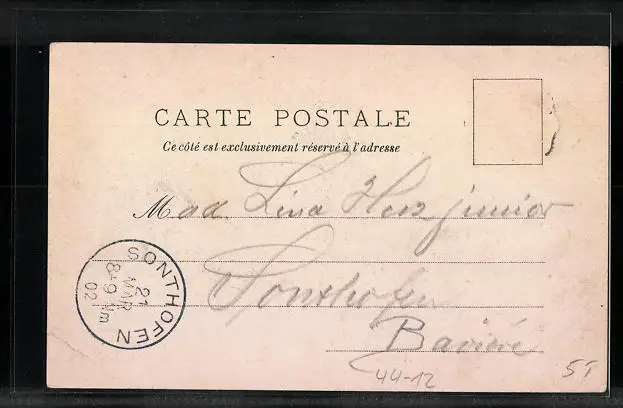 CARTE POSTALE
Ce côté est exclusivement réservé à l'adresse
Mad. Lina Herz junior
Sonthofen
Bavière
SONTHOFEN
21
MAR
8-9 Nm
02
44-12